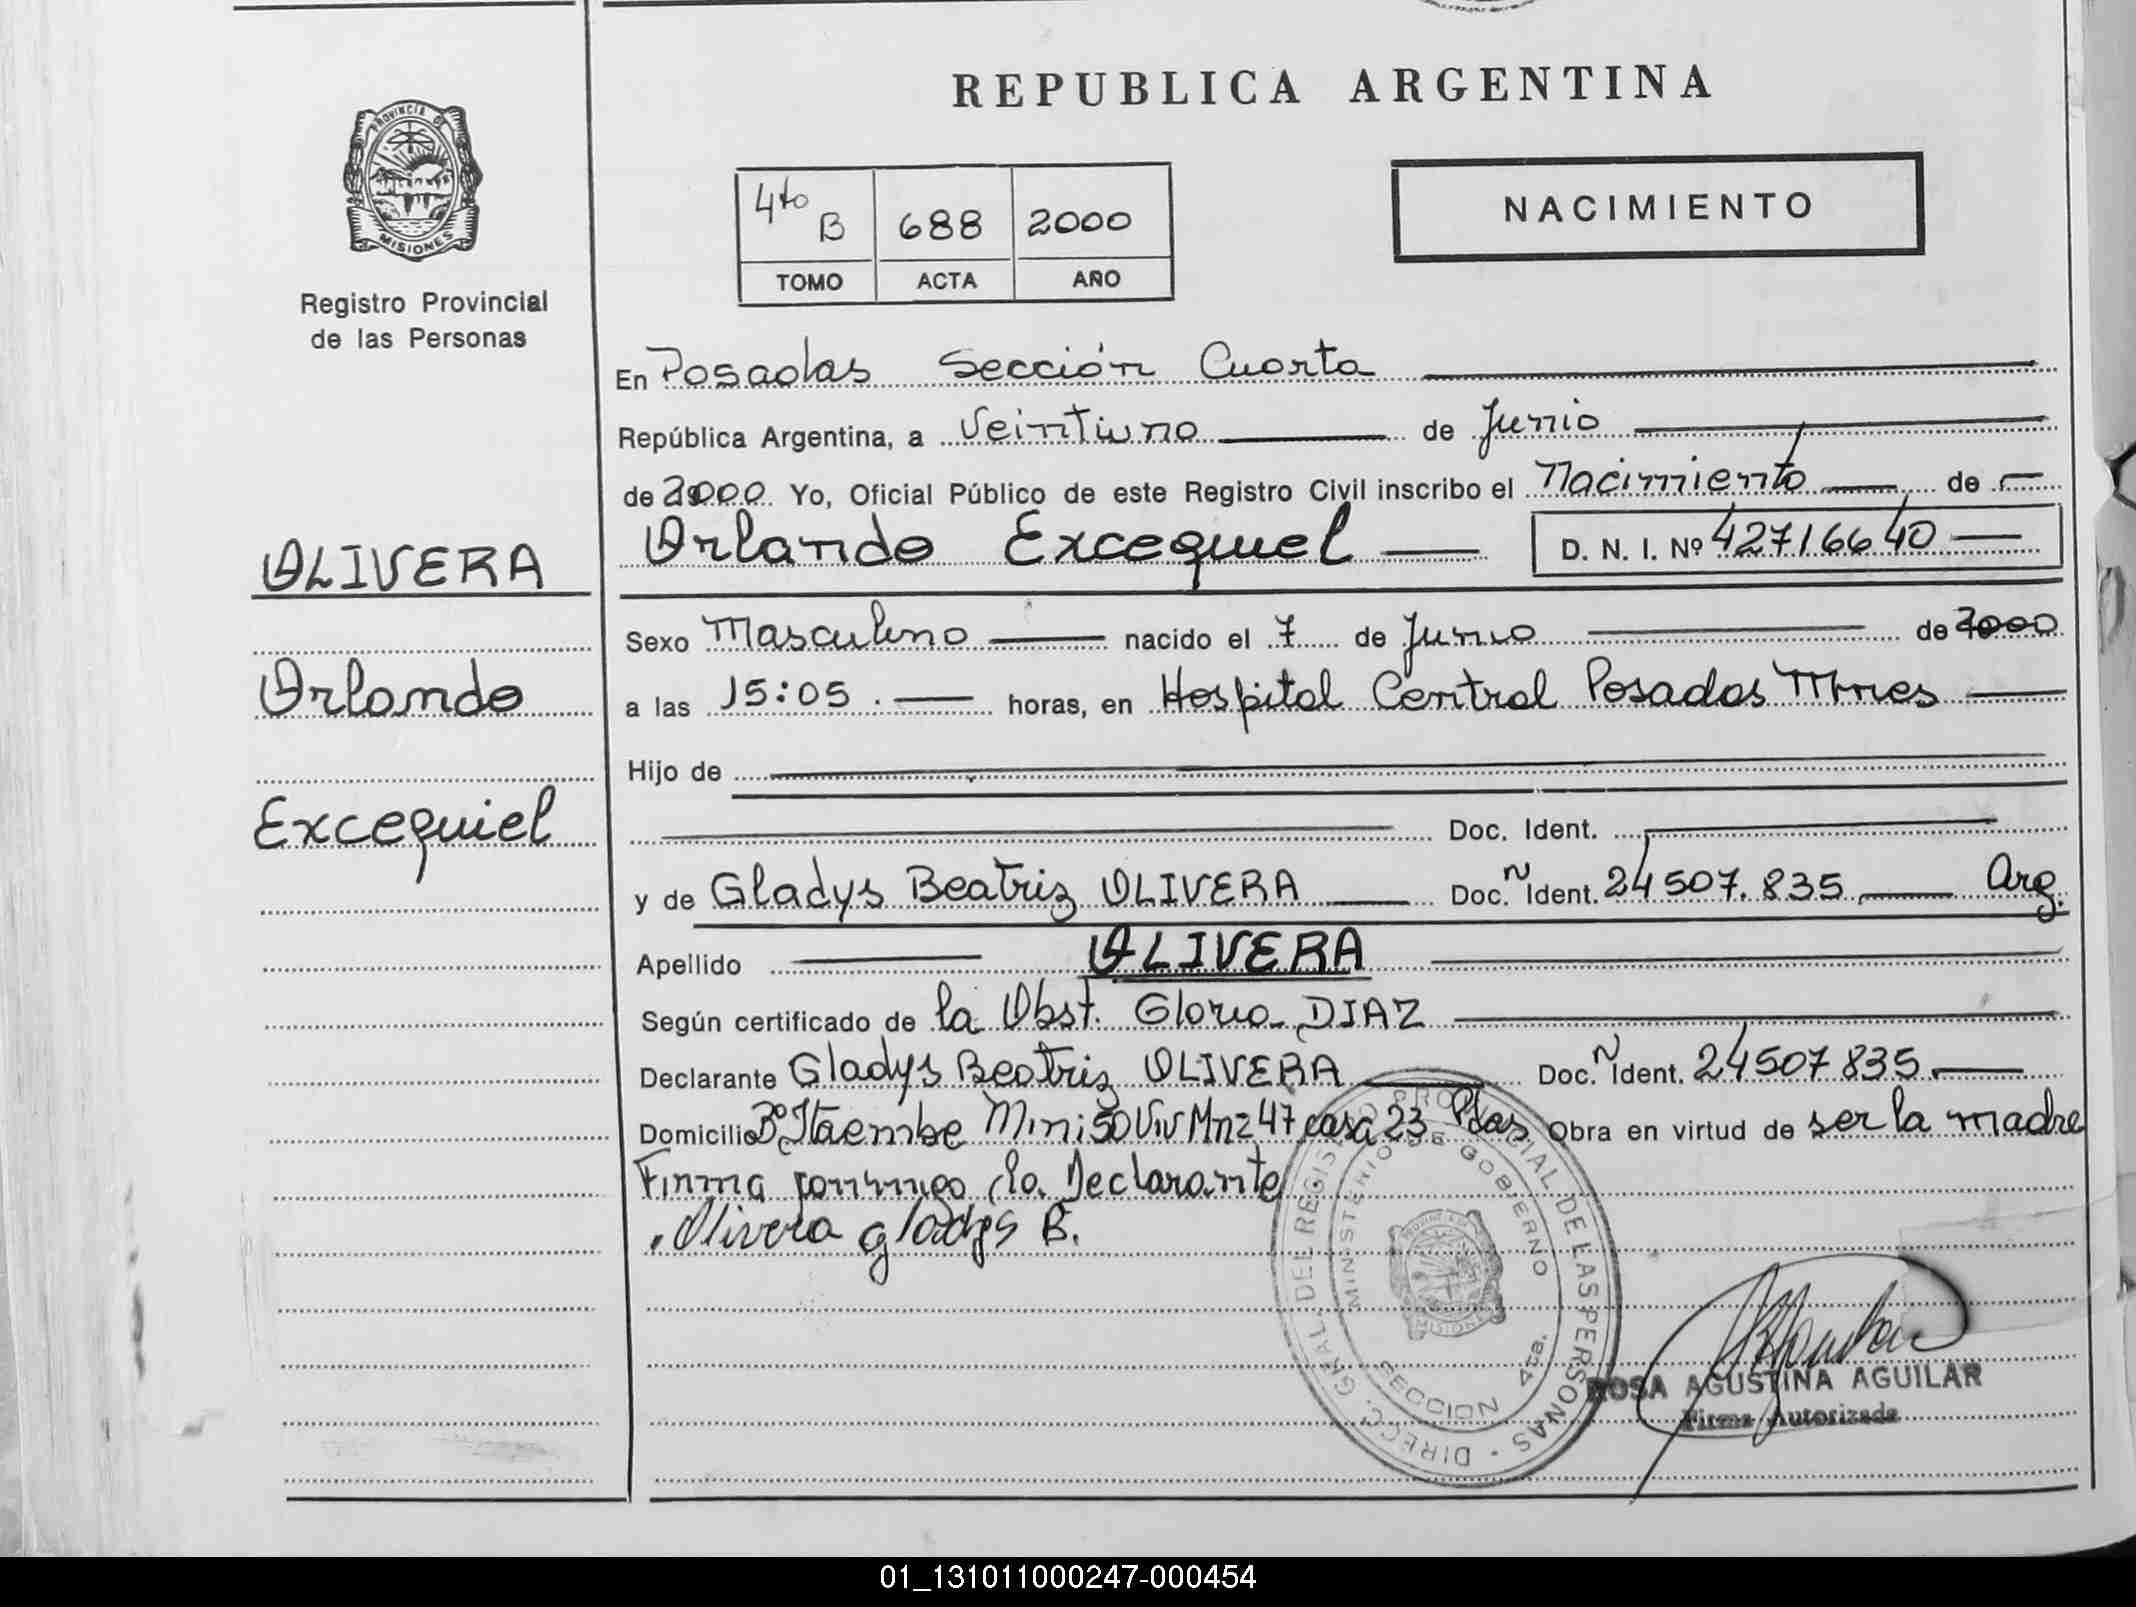 REPUBLICA ARGENTINA
PROVINCIA DE
MISIONES
Registro Provincial
de las Personas
4to B 688 2000
TOMO ACTA AÑO
NACIMIENTO
En Posadas Sección Cuarta
República Argentina, a Veintiuno de Junio
de 2000 Yo, Oficial Público de este Registro Civil inscribo el Nacimiento de
OLIVERA
Orlando Excequiel D. N. I. Nº 42716640
Sexo Masculino nacido el 7 de Junio de 2000
Orlando
a las 15:05. horas, en Hospital Central Posadas Mnes
Hijo de
Excequiel
y Doc. Ident.
y de Gladys Beatriz OLIVERA Doc. N Ident. 24507.835 Arg.
Apellido OLIVERA
Según certificado de la Obst. Gloria DIAZ
Declarante Gladys Beatriz OLIVERA Doc. N Ident. 24507835
Domicilio Bº Itaembe Mini 50 Viv Mnz 47 casa 23 Pdas Obra en virtud de ser la madre
Firma conmigo la Declarante
Olivera gladys B.
DIRECC. GRAL. DEL REGISTRO PROVINCIAL DE LAS PERSONAS
MINISTERIO DE GOBIERNO
MISIONES
SECCION 4ta.
ROSA AGUSTINA AGUILAR
Firma Autorizada
01_131011000247-000454